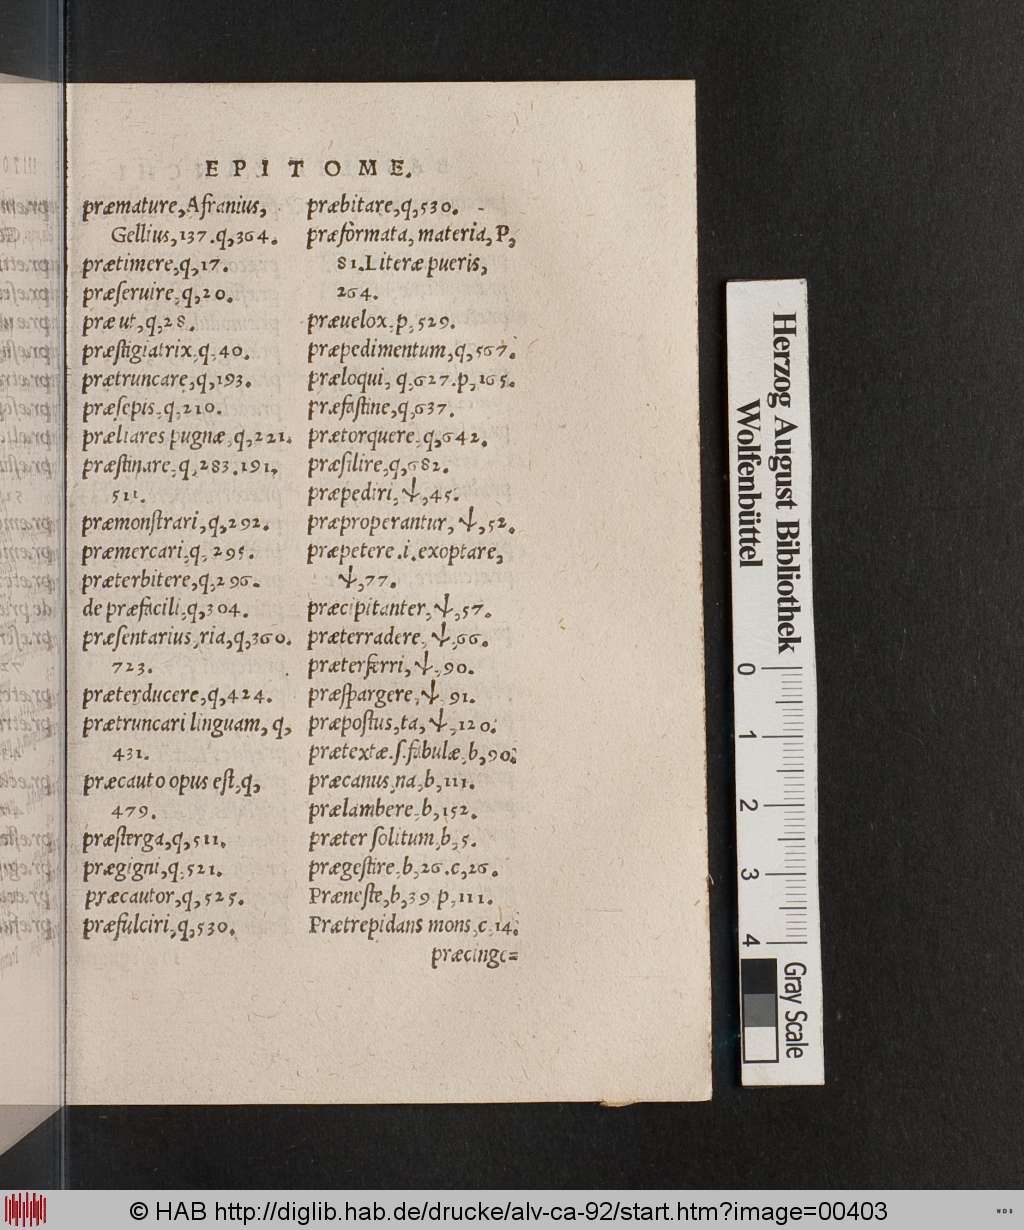 EPITOME.
præmature, Afranius,
Gellius, 137. q, 364.
prætimere, q, 17.
præſeruire, q, 20.
præ ut, q, 28.
præſtigiatrix, q, 40.
prætruncare, q, 193.
præſepis, q, 210.
præliares pugnæ, q, 221.
præſtinare, q, 283. 191,
511.
præmonſtrari, q, 292.
præmercari, q, 295.
præterbitere, q, 296.
de præfacili, q, 304.
præſentarius, ria, q, 360.
723.
præterducere, q, 424.
prætruncari linguam, q,
431.
præcauto opus eſt, q,
479.
præſterga, q, 511.
prægigni, q, 521.
præcautor, q, 525.
præfulciri, q, 530.
præbitare, q, 530.
præformata, materia, P,
81. Literæ pueris,
264.
præuelox, p, 529.
præpedimentum, q, 567.
præloqui, q, 627. p, 165.
præfaſtine, q, 637.
prætorquere, q, 642.
præſilire, q, 682.
præpediri, ψ, 45.
præproperantur, ψ, 52.
præpetere .i. exoptare,
ψ, 77.
præcipitanter, ψ, 57.
præterradere, ψ, 66.
præterferri, ψ, 90.
præſpargere, ψ, 91.
præpoſtus, ta, ψ, 120.
prætextæ .ſ. fabulæ, b, 90.
præcanus, na, b, 111.
prælambere, b, 152.
præter ſolitum, b, 5.
prægeſtire, b, 26. c, 26.
Præneſte, b, 39. p, 111.
Prætrepidans mons, c, 14.
præcinge=
Herzog August Bibliothek
Wolfenbüttel
0 1 2 3 4
Gray Scale
© HAB http://diglib.hab.de/drucke/alv-ca-92/start.htm?image=00403